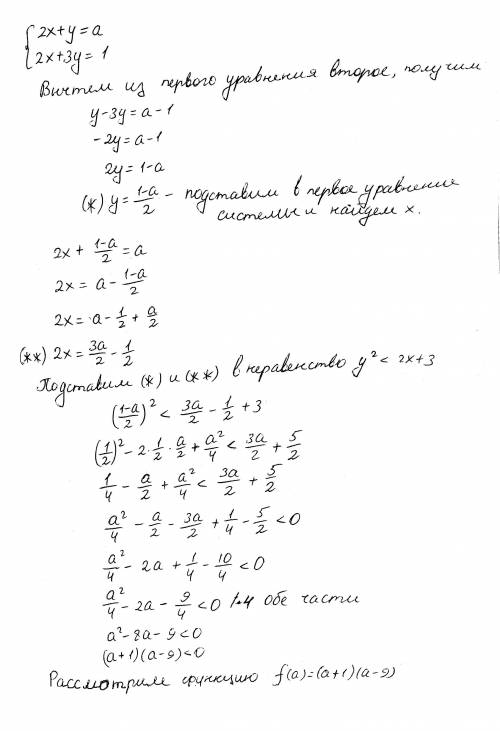 2x+y=a
2x+3y=1
Вычтем из первого уравнения второе, получим
y-3y=a-1
-2y=a-1
2y=1-a
(*) y=\frac{1-a}{2} - подставим в первое уравнение
системы и найдем x.
2x+\frac{1-a}{2}=a
2x=a-\frac{1-a}{2}
2x=a-\frac{1}{2}+\frac{a}{2}
(**) 2x=\frac{3a}{2}-\frac{1}{2}
Подставим (*) и (**) в неравенство y²<2x+3
(\frac{1-a}{2})²<\frac{3a}{2}-\frac{1}{2}+3
(\frac{1}{2})²-2·\frac{1}{2}·\frac{a}{2}+\frac{a²}{4}<\frac{3a}{2}+\frac{5}{2}
\frac{1}{4}-\frac{a}{2}+\frac{a²}{4}<\frac{3a}{2}+\frac{5}{2}
\frac{a²}{4}-\frac{a}{2}-\frac{3a}{2}+\frac{1}{4}-\frac{5}{2}<0
\frac{a²}{4}-2a+\frac{1}{4}-\frac{10}{4}<0
\frac{a²}{4}-2a-\frac{9}{4}<0 |·4 обе части
a²-8a-9<0
(a+1)(a-9)<0
Рассмотрим функцию f(a)=(a+1)(a-9)